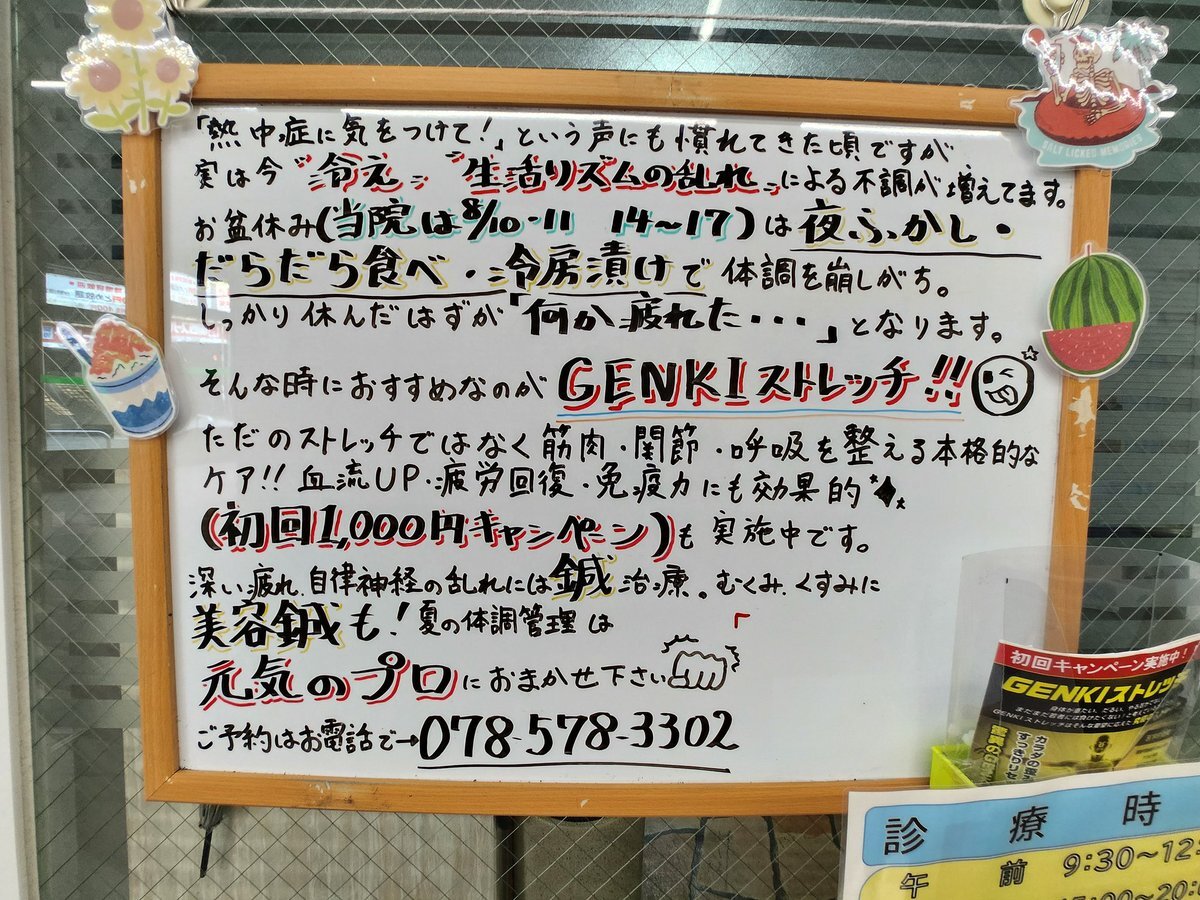 「熱中症に気をつけて!」という声にも慣れてきた頃ですが
実は今"冷え" "生活リズムの乱れ"による不調が増えてます。
お盆休み(当院は8/10-11 14～17)は夜ふかし・
だらだら食べ・冷房漬けで体調を崩しがち。
しっかり休んだはずが「何か疲れた・・・」となります。
そんな時におすすめなのがGENKIストレッチ!!
ただのストレッチではなく筋肉・関節・呼吸を整える本格的な
ケア!!血流UP・疲労回復・免疫力にも効果的
(初回1,000円キャンペーン)も実施中です。
深い疲れ、自律神経の乱れには鍼治療。むくみ、くすみに
美容鍼も!夏の体調管理は
元気のプロにおまかせ下さい
ご予約はお電話で→078-578-3302
SALT LICKED MEMORIES
初回キャンペーン実施中!
GENKIストレッ
身体が重たい、だるい、やる
まだまだ若者には負けたくない!
GENKIストレッチは
カラダの
すっきり
診療時
午前 9:30～12:
00～20: